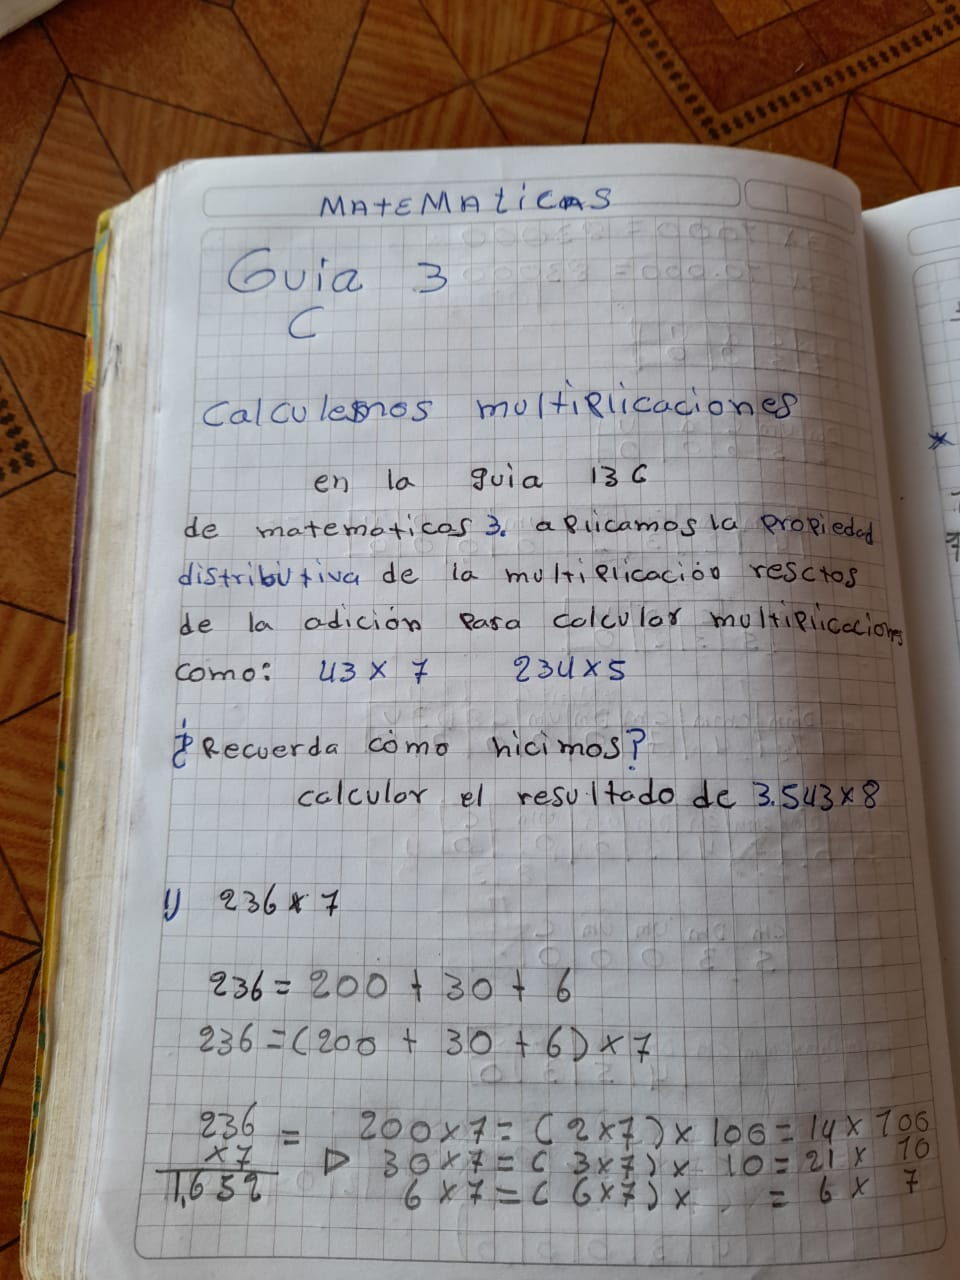 MATEMATICAS
Guia 3
C
Calculemos multiplicaciones
en la guia 13 C
de matematicas 3. aplicamos la propiedad
distributiva de la multiplicación resctos
de la adición para calcular multiplicaciones
como: 43 x 7 234 x 5
¿Recuerda cómo hicimos?
calcular el resultado de 3.543 x 8
1) 236 x 7
236 = 200 + 30 + 6
236 = (200 + 30 + 6) x 7
236 = 200 x 7 = (2 x 7) x 100 = 14 x 100
x 7 ▷ 30 x 7 = (3 x 7) x 10 = 21 x 10
1,652 6 x 7 = (6 x 7) x = 6 x 7